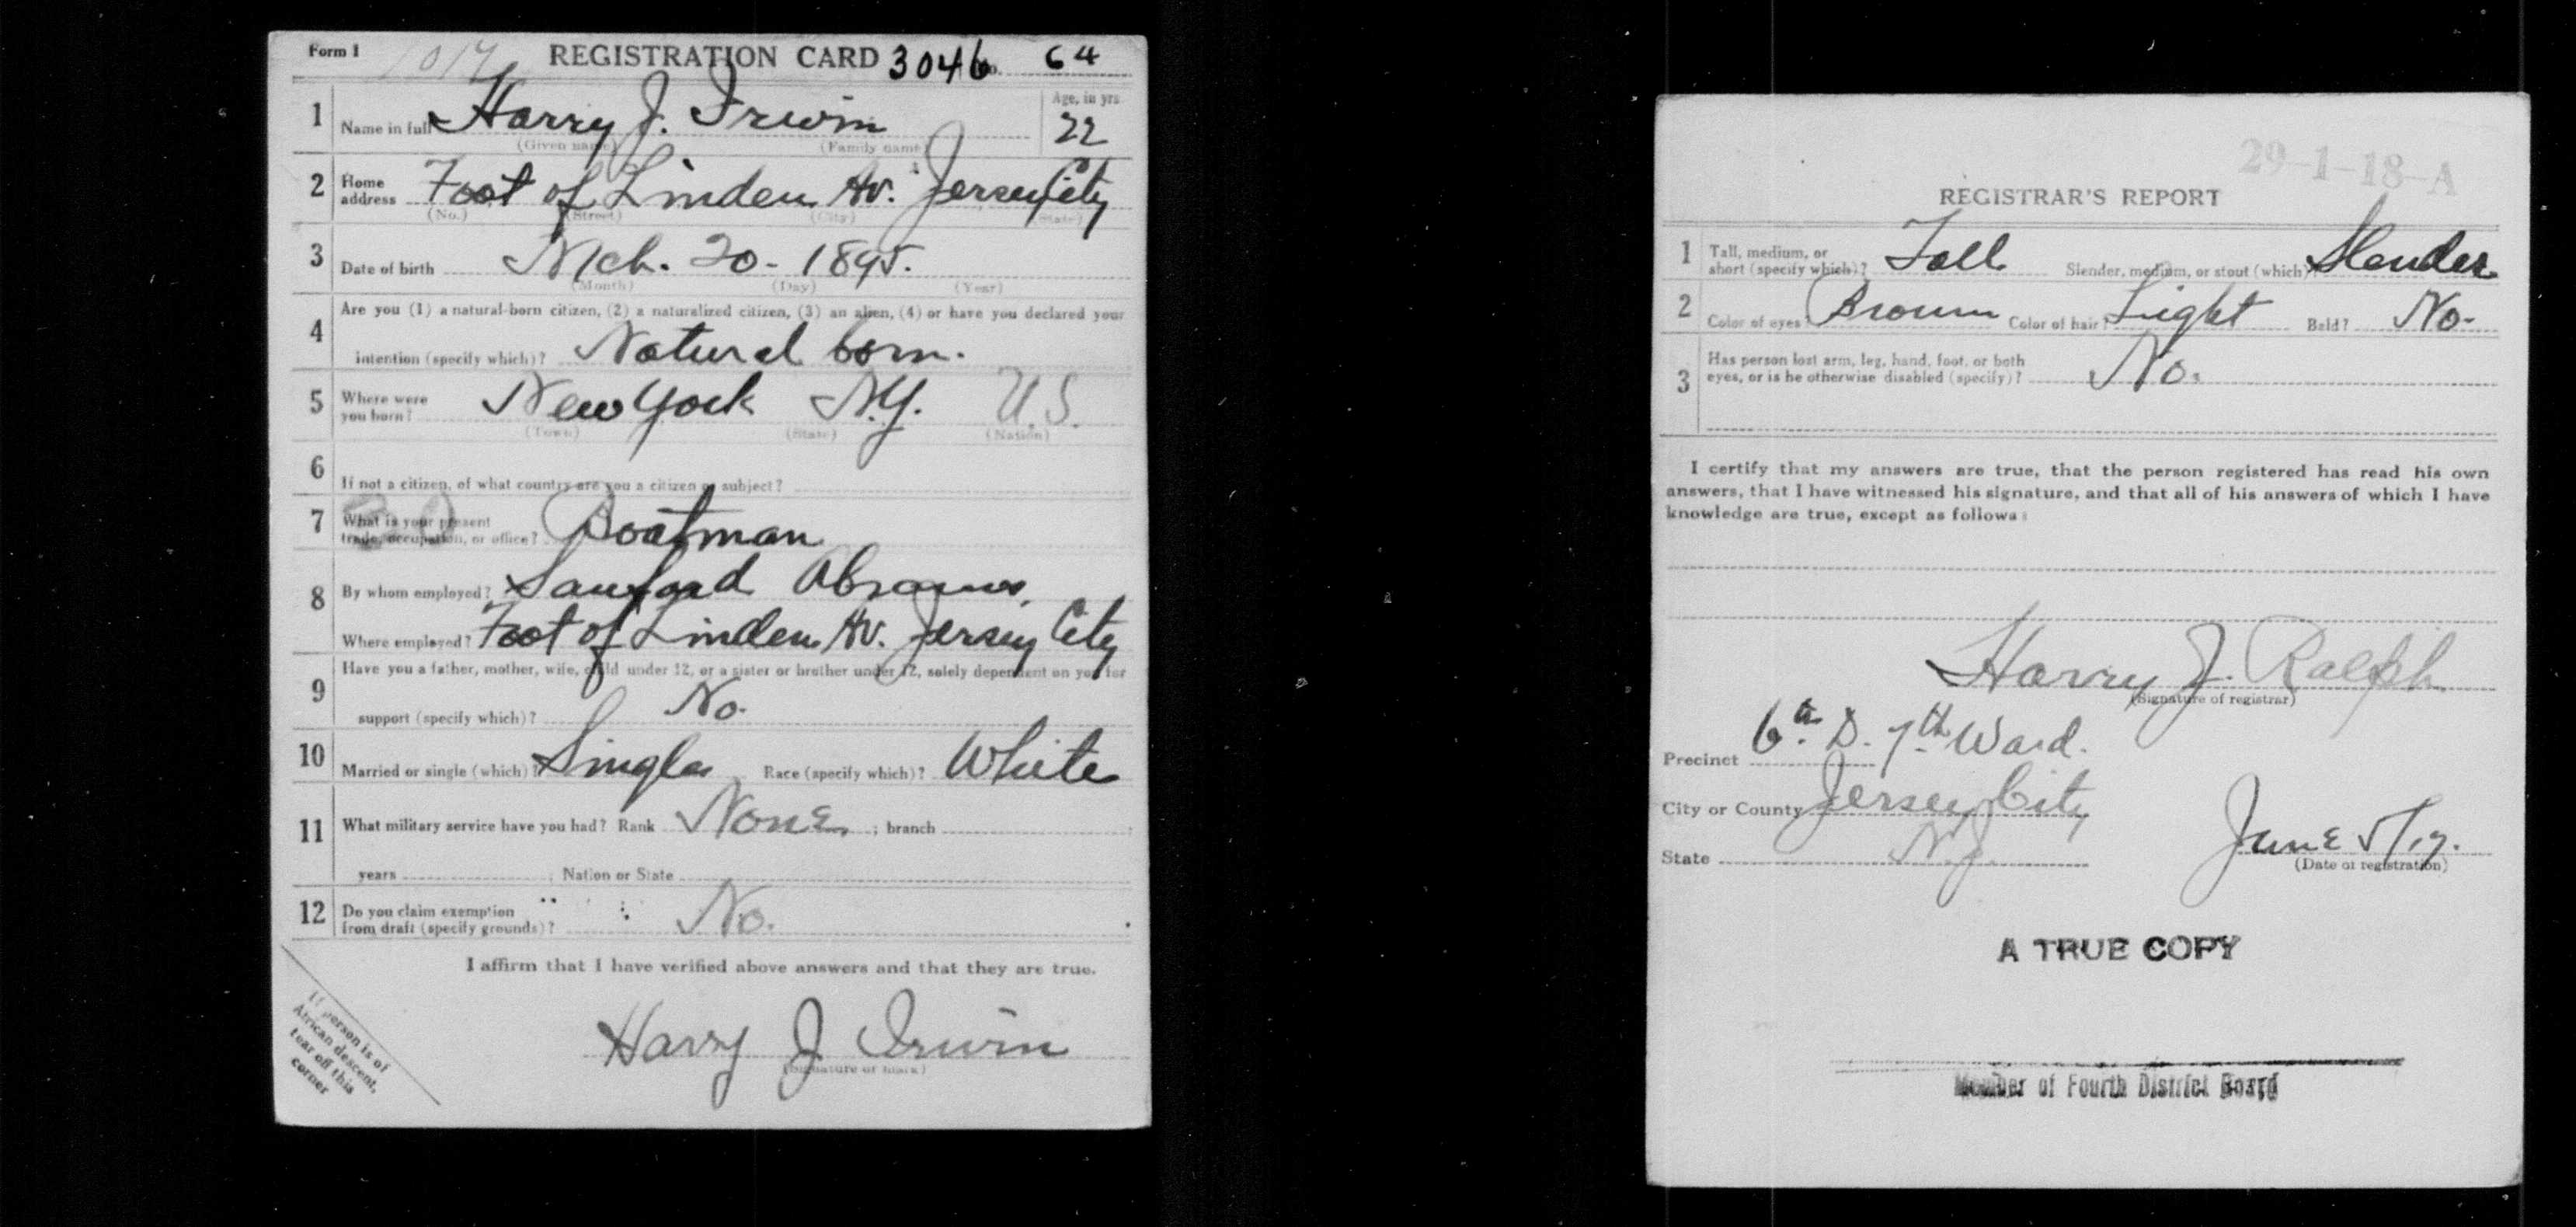 Form 1 1017 REGISTRATION CARD 3046 No. 64
1 Name in full Harry J. Irwin Age, in yrs 22
(Given name) (Family name)
2 Home address Foot of Linden Av. Jersey City
(No.) (Street) (City) (State)
3 Date of birth Mch. 20 - 1895.
(Month) (Day) (Year)
4 Are you (1) a natural-born citizen, (2) a naturalized citizen, (3) an alien, (4) or have you declared your
intention (specify which)? Natural born.
5 Where were you born? New York N.Y. U.S.
(Town) (State) (Nation)
6 If not a citizen, of what country are you a citizen or subject?
7 What is your present trade, occupation, or office? Boatman
8 By whom employed? Sanford Abrams,
Where employed? Foot of Linden Av. Jersey City
9 Have you a father, mother, wife, child under 12, or a sister or brother under 12, solely dependent on you for
support (specify which)? No.
10 Married or single (which)? Single Race (specify which)? White
11 What military service have you had? Rank None ; branch
years ; Nation or State
12 Do you claim exemption from draft (specify grounds)? No.
I affirm that I have verified above answers and that they are true.
Harry J Irwin
(Signature or mark)
If person is of
African descent,
tear off this
corner
29-1-18-A
REGISTRAR'S REPORT
1 Tall, medium, or short (specify which)? Tall Slender, medium, or stout (which)? Slender
2 Color of eyes? Brown Color of hair? Light Bald? No.
3 Has person lost arm, leg, hand, foot, or both
eyes, or is he otherwise disabled (specify)? No.
I certify that my answers are true, that the person registered has read his own
answers, that I have witnessed his signature, and that all of his answers of which I have
knowledge are true, except as follows:
Harry J. Ralph
(Signature of registrar)
Precinct 6th D. 7th Ward.
City or County Jersey City
State N.J. June 5/17.
(Date of registration)
A TRUE COPY
Member of Fourth District Board